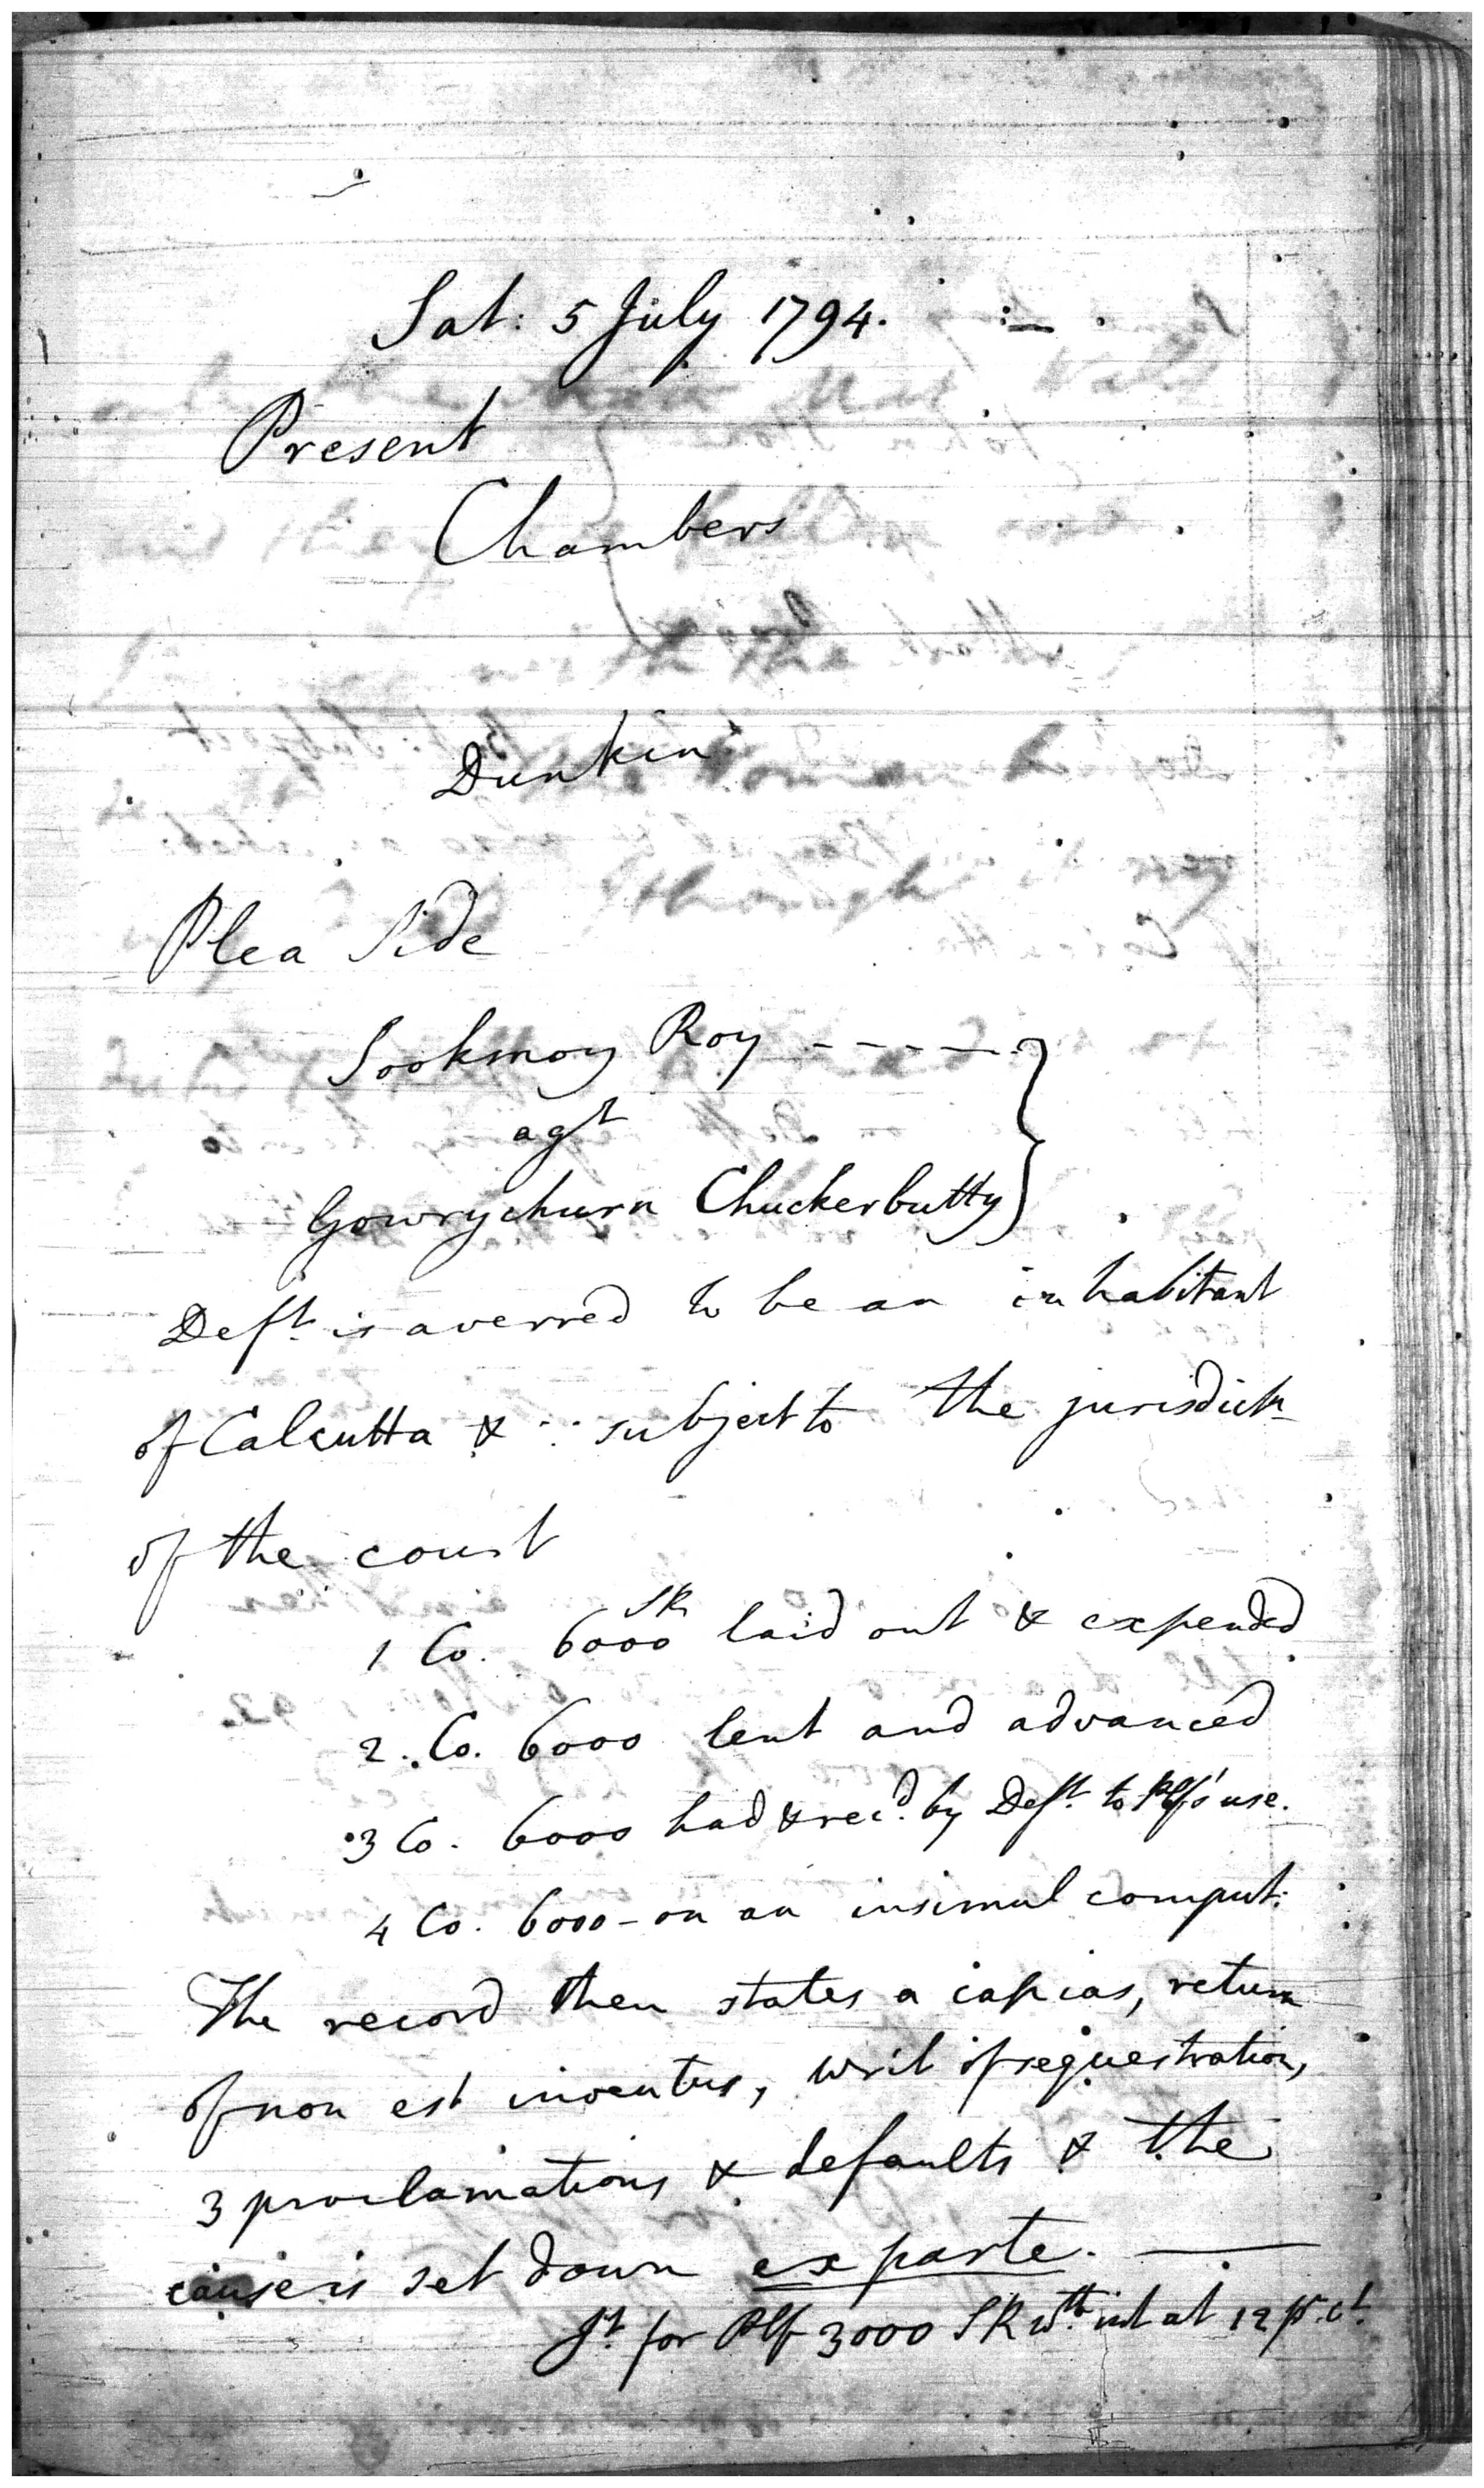 Sat: 5 July 1794.
Present
Chambers
Dunkin
Plea Side
Sookmoy Roy - - - - -
agt
Gowrychurn Chuckerbutty
Deft. is averred to be an inhabitant
of Calcutta & subject to the jurisdictn
of the court
1 Co. 6000 SRs laid out & expended
2. Co. 6000 lent and advanced
3 Co. 6000 had & recd. by Deft. to Plf's use.
4 Co. 6000 - on an insimul comput:
The record then states a capias, return
of non est inventus, writ of sequestration,
3 proclamations & defaults & the
cause is set down ex parte. —
Jt. for Plf 3000 SR wth. int at 12 pr. ct.